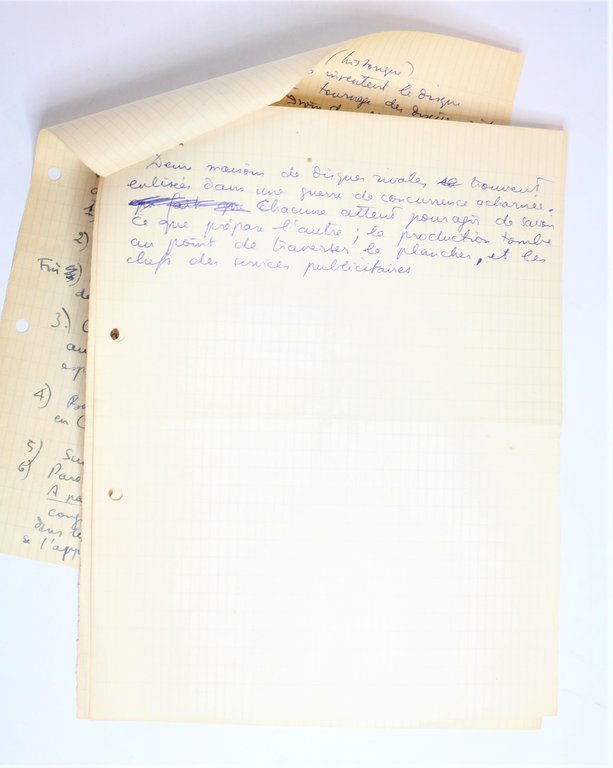 (historique)
inventent le disque
tournage des
Deux maisons de disques rivales se trouvent
enlisées dans une guerre de concurrence acharnée.
qui fait que Chacune attent pour agir de savoir
ce que prépare l'autre ; la production tombe
au point de traverser le plancher, et les
chefs des services publicitaires
2)
Fin
de
3) C
au
esp
4)
en C
5)
6) Para
A pa
cong
dans le
& l'app